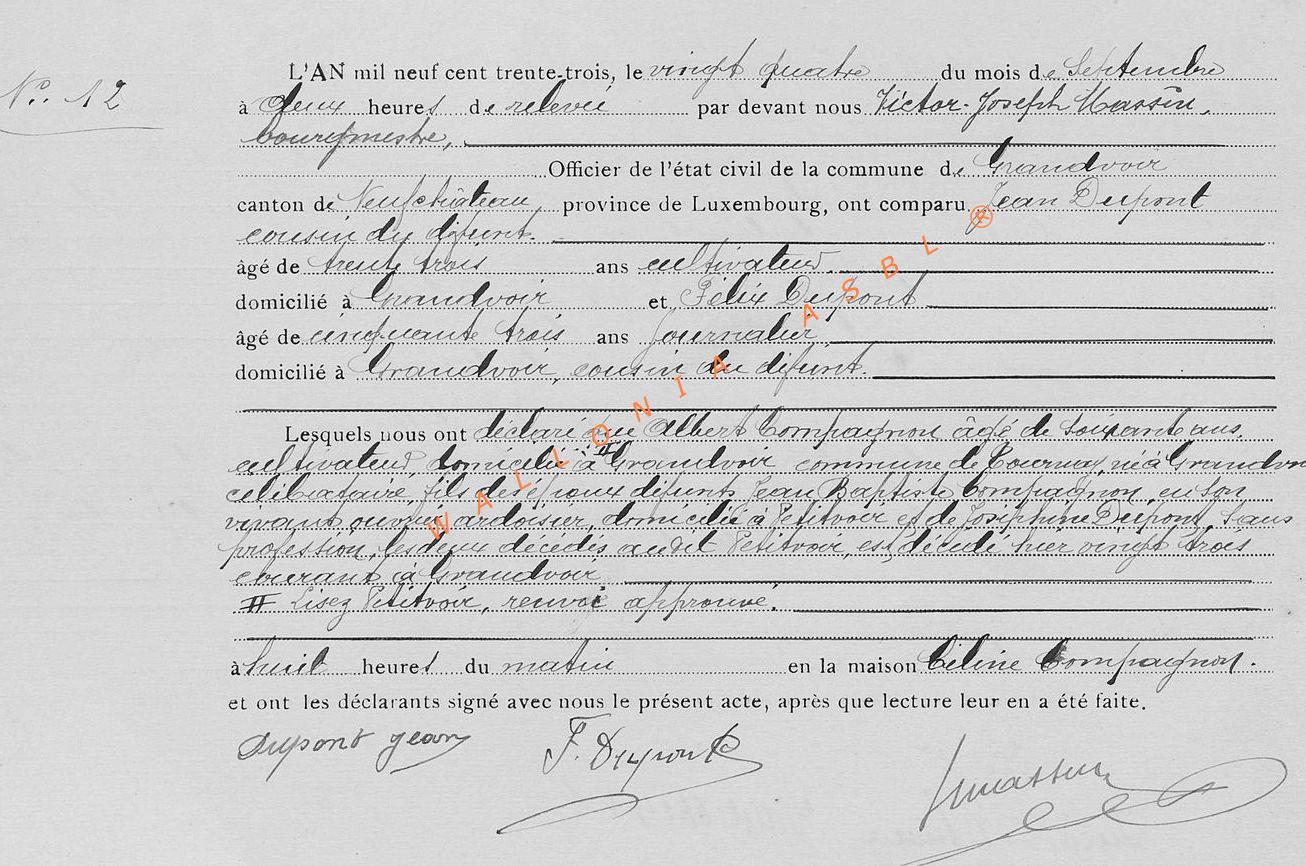 No. 12
L'AN mil neuf cent trente-trois, le vingt quatre du mois de Septembre
à deux heures de relevée par devant nous Victor-Joseph Massin,
bourgmestre,
Officier de l'état civil de la commune de Grandvoir
canton de Neufchâteau, province de Luxembourg, ont comparu Jean Dupont
cousin du défunt.
âgé de trente trois ans cultivateur
domicilié à Grandvoir et Félix Dupont
âgé de cinquante trois ans journalier,
domicilié à Grandvoir, cousin du défunt.
Lesquels nous ont déclaré que Albert Compagnon âgé de soixante ans,
cultivateur, domicilié à Grandvoir commune de Tournay, né à Grandvoir
célibataire, fils des époux défunts Jean Baptiste Compagnon, en son
vivant ouvrier ardoisier, domicilié à Petitvoir et de Joséphine Dupont, sans
profession, les deux décédés audit Petitvoir, est décédé hier vingt trois
courant à Grandvoir
II Lisez Petitvoir, renvoi approuvé.
à huit heures du matin en la maison Céline Compagnon.
et ont les déclarants signé avec nous le présent acte, après que lecture leur en a été faite.
Dupont Jean F. Dupont
WALLONIA ASBL ®